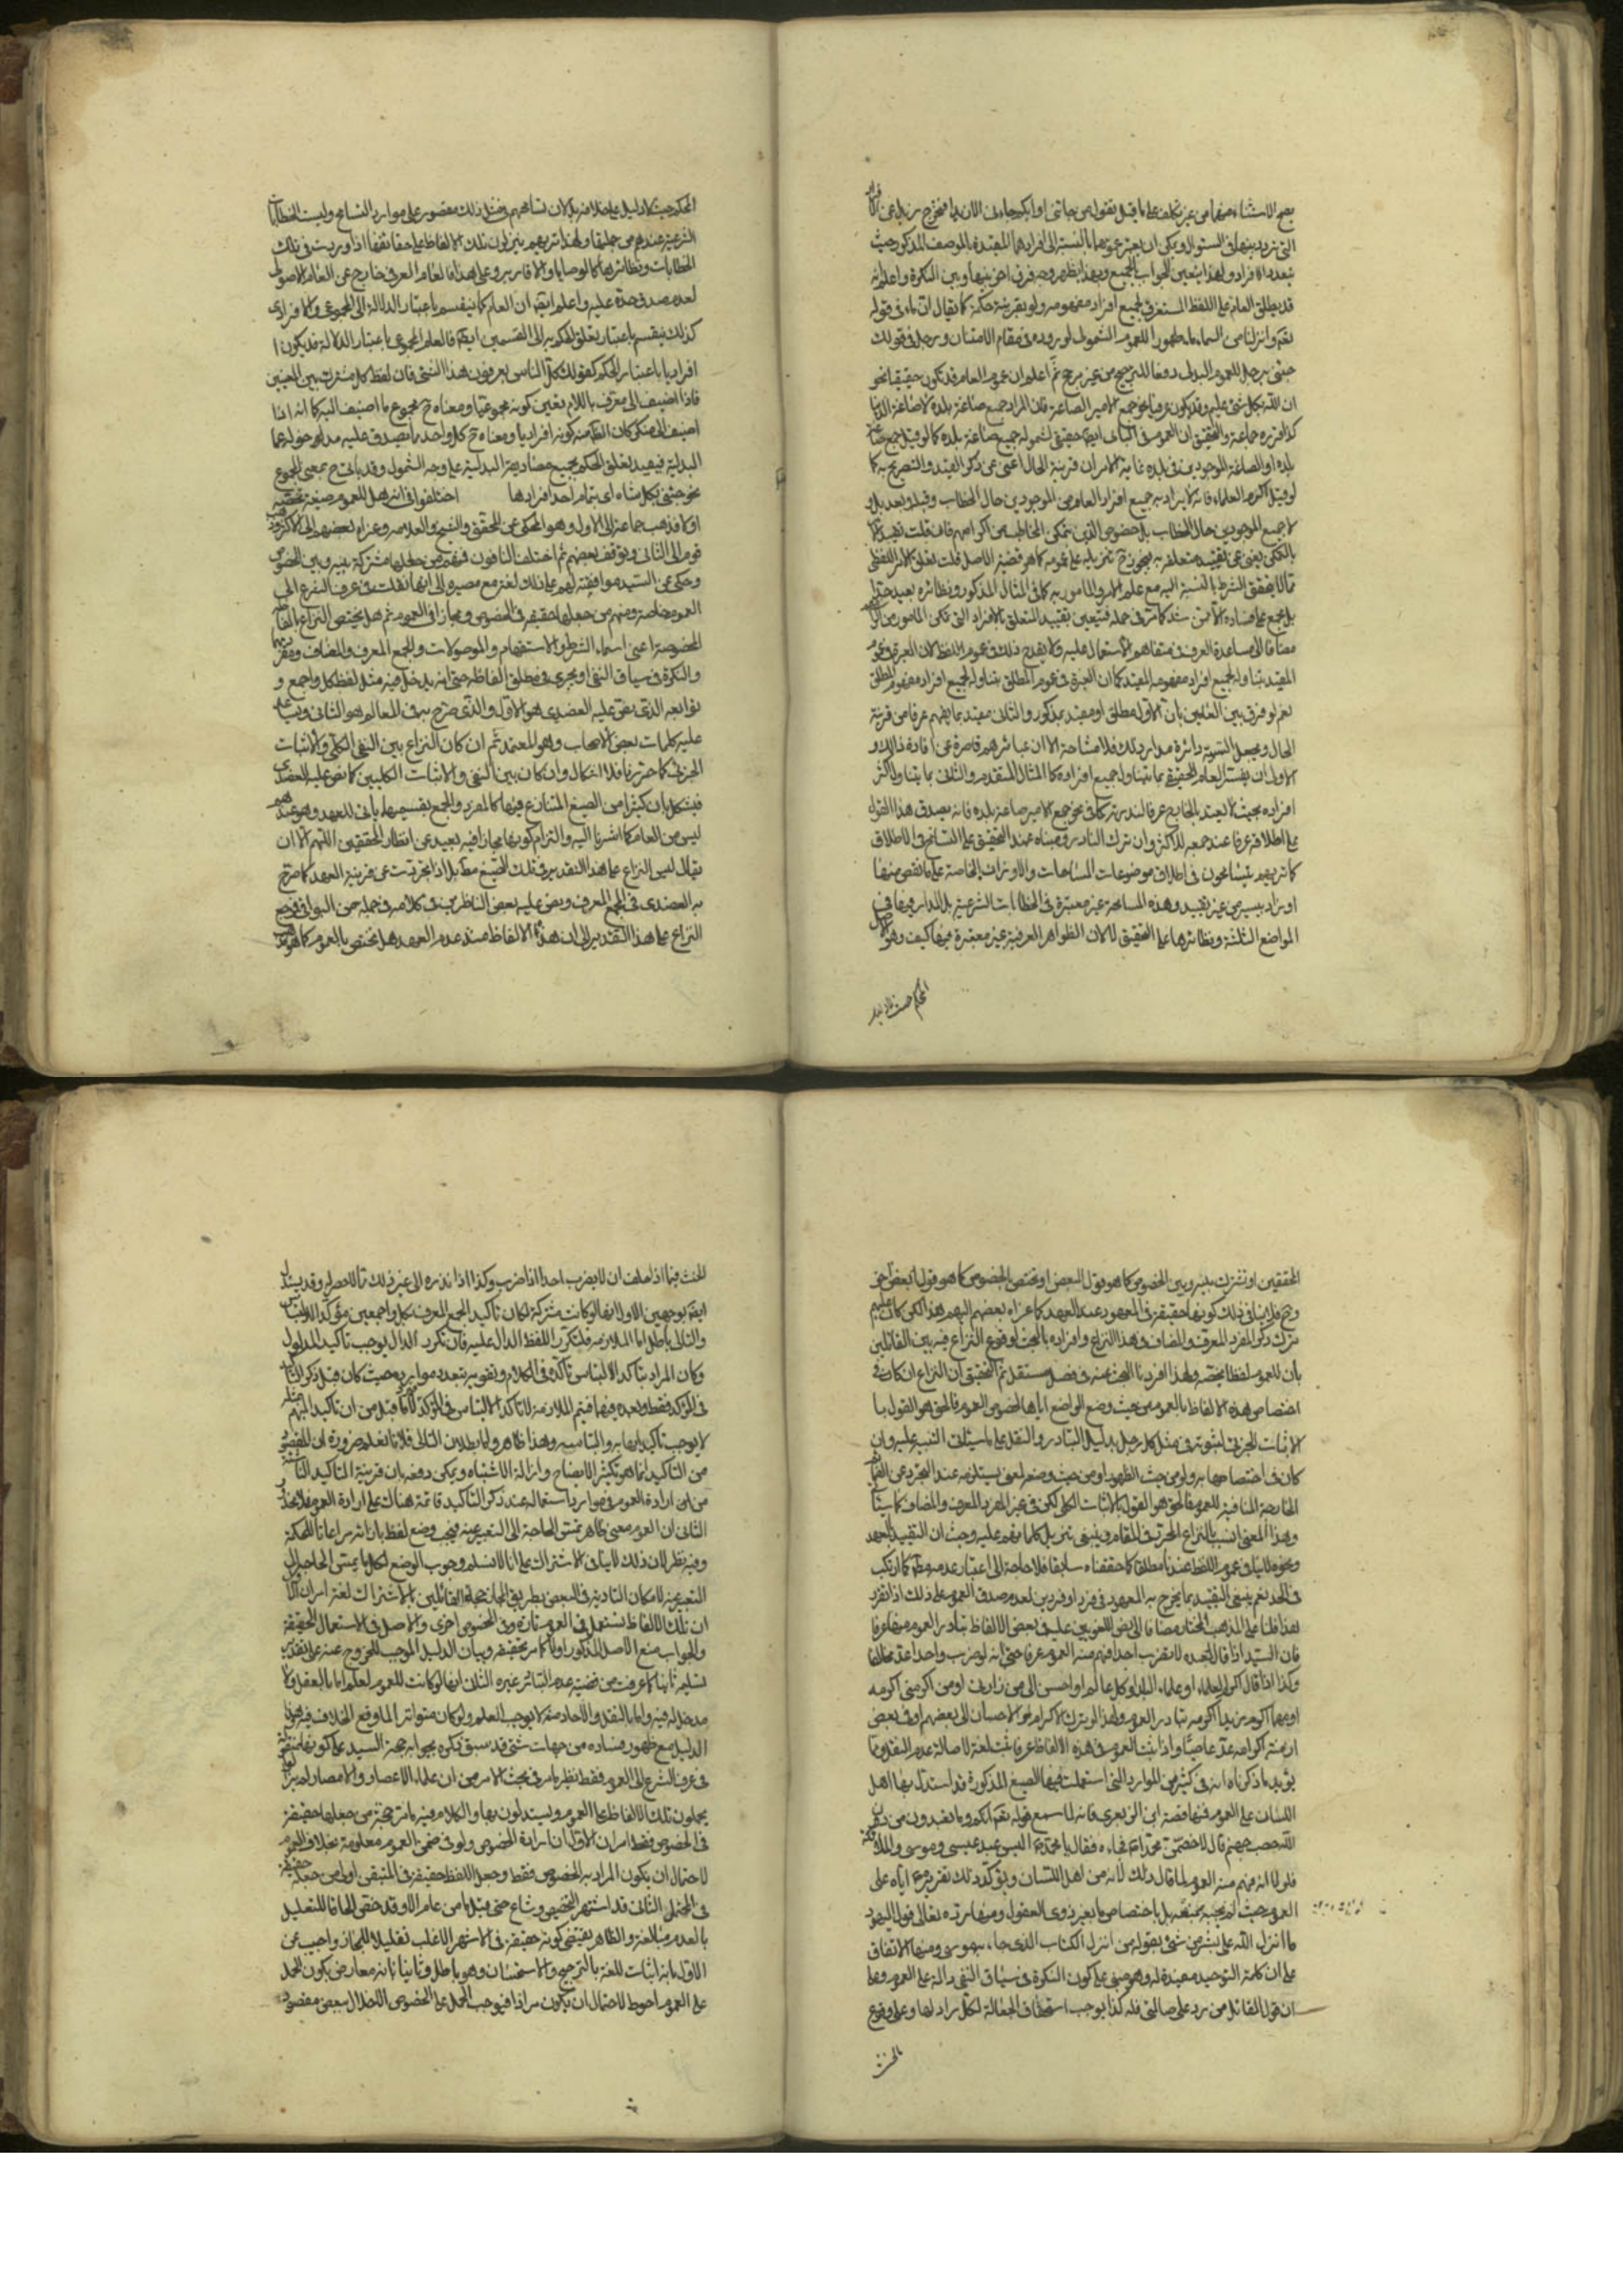 يصح الاستثناء منها من غير تكلف على ما قيل بقوله من جاءني اوابكم جاءني الان لنا مخرج زيد عن الافراد
التي تردد بينها في السئوال ويمكن ان يعتبر عمومها بالنسبة الى افرادها المقيدة بالوصف المذكور حيث
يتعدد الافراد ولهذا يتعين الجواب بالجميع وبهذا يظهر وجه فرق اخر بينها وبين النكرة واعلم انه
قد يطلق العام على اللفظ المستغرق لجميع افراد مفهومه ولو بقرينة حكمة كما يقال ان ماء في قوله
تعالى وانزلنا من السماء ماء طهورا للعموم الشمولي لوروده في مقام الامتنان ورجل في قولك
جئني برجل للعموم البدلي دفعا للترجيح من غير مرجح ثم اعلم ان عموم العام قد يكون حقيقيا نحو
ان الله بكل شئ عليم وقد يكون عرفيا نحو جمع الامير الصاغة فان المراد جميع صاغة بلده لا صاغة الدنيا
كذا قرره جماعة والتحقيق ان العموم في الثاني ايضا حقيقي لشموله جميع صاغة بلده كما لو قيل جمع صاغة
بلده او الصاغة الموجودين في بلده غاية الامر ان قرينة الحال اغنى عن ذكر القيد والتصريح به كما
لو قيل اكرم العلماء فانه لا يراد به جميع افراد العام من الموجودين حال الخطاب وقبله وبعده بل ولا
لا جميع الموجودين حال الخطاب بل خصوص الذين يتمكن المخاطب من اكرامهم فان قلت تقييد الامر
بالتمكن يغني عن تقييد متعلقه به فيجوز ح تنزيله على عمومه كما هو قضية الاصل قلت تعلق الامر اللفظي
المقيد بتناوله لجميع افراد مفهومه المقيد كما ان العبرة في عموم المطلق بتناوله لجميع افراد مفهوم المطلق
نعم لو فرق بين العامين بان الاول مطلق او مقيد بمذكور والثاني مقيد بما يفهم عرفا من قرينة
الحال ويجعل التسمية دائرة مدار ذلك فلا مشاحة الا ان عبائرهم قاصرة عن افادة ذلك و
الاولى ان يفسر العام الحقيقي بما يتناول جميع افراده كما المثال المتقدم والثاني بما يتناول اكثر
افراده بحيث لا يعتد بالخارج عرفا لندرته كما في نحو جمع الامير صاغة بلده فانه يصدق هذا القول
على اطلاقه عرفا عند جمعه للاكثر وان ترك النادر ومبناه عند التحقيق على التسامح في الاطلاق
كما تريهم يتسامحون في اطلاق موضوعات المساحات والاوزان الخاصة على ما نقص منها
او زاد بيسير من غير تقييد وهذه المسامحة غير معتبرة في الخطابات الشرعية بل المدار فيها في
المواضع الثلثة ونظائرها على التحقيق لا لان الظواهر العرفية غير معتبرة فيها كيف وهو الاصل
المحكم حيث لا دليل
المحكم حيث لا دليل على خلافه بل لان تسامحهم في مثل ذلك مقصور على موارد التسامح وليست الخطابات
الشرعية عندهم من جملتها ولهذا تريهم ينزلون تلك الالفاظ على حقائقها اذا وردت في تلك
الخطابات ونظائرها كالوصايا والاقارير وعلى هذا فالعام العرفي خارج عن العام الاصولي
لعدم صدق حده عليه واعلم ايضا ان العام كما ينقسم باعتبار الدلالة الى المجموعي والافرادي
كذلك ينقسم باعتبار تعلق الحكم به الى القسمين ايضا فالعام المجموعي باعتبار الدلالة قد يكون ا
افراديا باعتبار الحكم كقولك كل الناس يعرفون هذا الشئ فان لفظ كل مشترك بين المعنيين
فاذا اضيف الى معرف باللام تعين كونه مجموعيا ومعناه ح مجموع ما اضيف اليه كما انه اذا
اضيف الى منكر كان الظ منه كونه افراديا ومعناه ح كل واحد مما يصدق عليه مدلول مدخوله
البدلية فيفيد تعلق الحكم بجميع مصاديقه البدلية على وجه الشمول وقد ياتي ح بمعنى المجموع
نحو جئني بكل شاة اى بتمام احد افرادها اختلفوا في انه هل للعموم صيغة تخصه
او لا فذهب جماعة الى الاول وهو المحكي عن المحقق والشيخ والعلامة وعزاه بعضهم الى الاكثر وذهب
قوم الى الثاني وتوقف بعضهم ثم اختلف النافون فمنهم من جعلها مشتركة بينه وبين الخصوص
وحكي عن السيد موافقته لهم على ذلك لغة مع مصيره الى انها نقلت في عرف الشرع الى
العموم خاصة ومنهم من جعلها حقيقة في الخصوص ومجازا في العموم ثم هل يختص النزاع بالفاظ
المخصوصة اعني اسماء الشرط والاستفهام والموصولات والجمع المعرف والمضاف ومفردهما
والنكرة في سياق النفي او يجري في مطلق الفاظه حتى انه يدخل فيه مثل لفظ كل واجمع و
توابعه الذى نص عليه العضدى هو الاول والذي صرح به في المعالم هو الثاني ويساعد
عليه كلمات بعض الاصحاب وهو المعتمد ثم ان كان النزاع بين النفي الكلي والاثبات
الجزئي كما حررنا فلا اشكال وان كان بين النفي والاثبات الكليين كما نص عليه العضدى
فيشكل بان كثيرا من الصيغ المتنازع فيها كالمفرد والجمع بقسميهما ياتى للعهد وهو عندهم
ليس من العام كما اشرنا اليه والتزام كونها مجازا فيه بعيد عن انظار المحققين اللهم الا ان
يقال ليس النزاع على هذا التقدير في تلك الصيغ مطلقا بل اذا تجردت عن قرينة العهد كما صرح
به العضدى في الجمع المعرف ونص عليه بعض الناظرين في كلامه في جملة من البواقي فيرجع
النزاع على هذا التقدير الى ان هذه الالفاظ عند عدم العهد هل تختص بالعموم كما هو مذهب
المحققين او تشترك بينه وبين الخصوص كما هو قول البعض او تختص بالخصوص كما هو قول بعض اخر
وح فلا ينافي ذلك كونها حقيقة في المعهود عند العهد كما عزاه بعضهم اليهم هذا لكن كان عليهم
ترك ذكر المفرد المعرف والمضاف في هذا النزاع وافراده بالبحث لوقوع النزاع فيه بين القائلين
بان للعموم لفظا يخصه ولهذا افردنا البحث عنه في فصل مستقل ثم التحقيق ان النزاع ان كان في
اختصاص هذه الالفاظ بالعموم من حيث وضع الواضع اياها لخصوص العموم فالحق هو القول با
لاثبات الجزئي لثبوته في مثل كل رجل بدليل التبادر والنقل على ما سيئاتى التنبيه عليه وان
كان في اختصاصها به ولو من حيث الظهور او من حيث وضعه لمعنى يستلزمه عند التجرد عن القرائن
الخارجة المنافية للعموم فالحق هو القول بالاثبات الكلي لكن في غير المفرد المعرف والمضاف لما سيئاتى
وهذا المعنى انسب بالنزاع المحرر في المقام وينبغي تنزيل كلماتهم عليه وحيث ان التقييد بالعهد
ونحوه لا ينافي عموم اللفظ عندنا مطلقا كما حققناه سابقا فلا حاجة الى اعتبار عدمه مطلقا كما ارتكب
في الحد نعم ينبغي التقييد بما يخرج به المعهود في فرد او فردين لعدم صدق العموم على ذلك اذا تقرر
هذا فلنا على المذهب المختار مضافا الى نص اللغويين عليه في بعض الالفاظ تبادر العموم منها عرفا
فان السيد اذا قال لعبده لا تضرب احدا فهم منه العموم عرفا حتى انه لو ضرب واحدا عد مخالفا
وكذا اذا قال اكرم العلماء او علماء البلد او كل عالم او احسن الى من زارك او من اكرمني اكرمه
ازمنة اكرامه عد عاصيا واذا ثبت العموم في هذه الالفاظ عرفا ثبت لغة لاصالة عدم النقل ومما
يؤيد ما ذكرناه انه في كثير من الموارد التي استعملت فيها الصيغ المذكورة قد استدل بها اهل
اللسان على العموم فمنها قصة ابن الزبعرى فانه لما سمع قوله تعالى انكم وما تعبدون من دون
الله حصب جهنم قال لاخصمن محمدا ثم جاءه فقال يا محمد اليس عبد عيسى وموسى والملائكة
فلولا انه فهم منه العموم لما قال ذلك لانه من اهل اللسان ويؤكد ذلك تقريره ع اياه على
العموم حيث لم يجبه بمنعه بل باختصاص ما بغير ذوى العقول ومنها رده تعالى قول اليهود
ما انزل الله على بشر من شئ بقوله من انزل الكتاب الذى جاء به موسى ومنها الاتفاق
على ان كلمة التوحيد مفيدة له وهو مبني على كون النكرة في سياق النفي دالة على العموم وعلى
ان قول القائل من رد على ضالتي فله كذا يوجب استحقاق الجعالة لكل راد لها وعلى وقوع
الحنث
الحنث فيما اذا حلف ان لا يضرب احدا اذا ضرب وكذا اذا نذره الى غير ذلك مما لا حصر له وقد يستدل
ايضا بوجهين الاول انها لو كانت مشتركة لكان تاكيد الجمع المعرف بكل واجمعين مؤكدا للالتباس
والتالى باطل اما الملازمة فلتكرر اللفظ الدال عليه فان تكرر الدال يوجب تاكيد المدلول
لا يوجب تاكيد ابهامه والتباسه وهذا ظاهر واما بطلان التالى فلانا نعلم ضرورة ان المقصود
من التاكيد انما هو تكثير الايضاح وازالة الاشتباه ويمكن دفعه بان قرينة التاكيد
الثاني ان العموم معنى ظاهر تمس الحاجة الى التعبير عنه فيجب وضع لفظ بازائه مراعاتا للحكمة
وفيه نظر لان ذلك لا ينافي الاشتراك على انا لا نسلم وجوب الوضع لكل ما تمس الحاجة الى
التعبير عنه لامكان التادية في البعض بطريق المجاز حجة القائلين بالاشتراك لغة امران الاول
ان تلك الالفاظ تستعمل في العموم تارة وفي الخصوص اخرى والاصل في الاستعمال الحقيقة
والجواب منع الاصل المذكور اولا كما مر تحقيقه وبيان الدليل الموجب للخروج عنه على تقدير
تسليمه ثانيا كما عرفت من قضية عدم التبادر غيره الثاني انها لو كانت للعموم لعلم اما بالعقل ولا
مدخل له فيه واما بالنقل والاحاد منه لا يوجب العلم ولو كان متواترا لما وقع الخلاف فيه وهذا
الدليل مع ظهور فساده من جهات شتى قد سبق ذكره بجوابه حجة السيد على كونها منقولة
في عرف الشرع الى العموم فقط نظير ما مر في بحث الامر من ان علماء الاعصار والامصار لم يزالوا
يحملون تلك الالفاظ على العموم ويستدلون بها والكلام فيه ما مر حجة من جعلها حقيقة
في الخصوص فقط امران الاول ان ارادة الخصوص ولو في ضمن العموم معلومة بخلاف العموم
لاحتمال ان يكون المراد به الخصوص فقط وجعل اللفظ حقيقة في المتيقن اولى من جعله حقيقة
في المحتمل الثاني قد اشتهر التخصيص وشاع حتى قيل ما من عام الا وقد خص الحاقا للقليل
بالعدم مبالغة والظاهر يقتضي كونه حقيقة في الاشهر الاغلب تقليلا للمجاز واجيب عن
الاول بانه اثبات للغة بالترجيح والاستحسان وهو باطل وثانيا بانه معارض بكون الحمل
على العموم احوط لاحتمال ان يكون مرادا فيوجب الحمل على الخصوص الاخلال ببعض مقصود